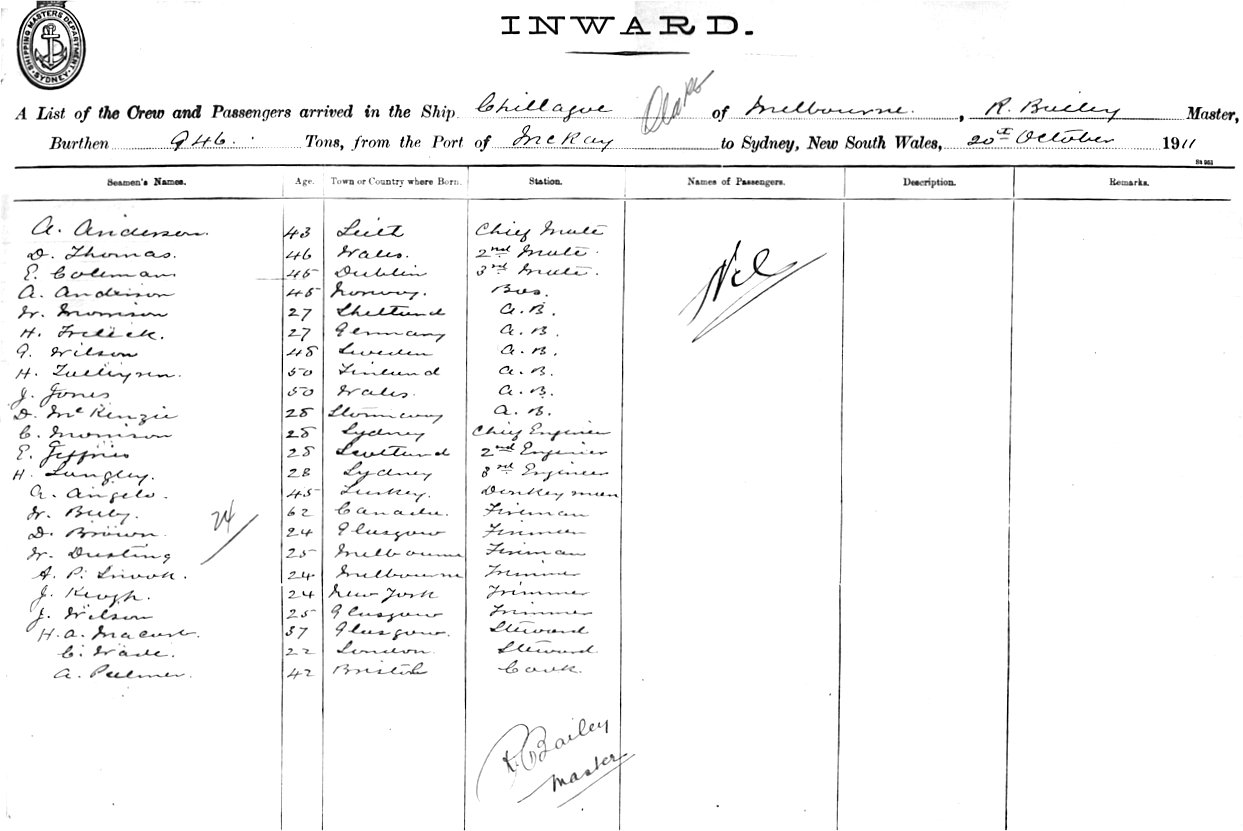 SHIPPING MASTERS DEPARTMENT SYDNEY
INWARD.
A List of the Crew and Passengers arrived in the Ship Chillagoe of Melbourne, R. Bailey Master,
Burthen 946 Tons, from the Port of McKay to Sydney, New South Wales, 20th October 1911
Seamen's Names. Age. Town or Country where Born. Station. Names of Passengers. Description. Remarks.
A. Anderson 43 Leith Chief Mate
D. Thomas. 46 Wales. 2nd Mate.
E. Coleman 45 Dublin 3rd Mate.
A. Anderson 45 Norway. Bos.
W. Morrison 27 Shetland A.B.
H. 27 Germany A.B.
Wilson 48 Sweden A.B.
H. 50 Finland A.B.
J. Jones 50 Wales. A.B.
D. McKenzie 28 Stornway A.B.
C. Morrison 28 Sydney Chief Engineer
E. Jeffries 28 Scotland 2nd Engineer
H. Langley. 28 Sydney 3rd Engineer
A. Angelo. 45 Turkey. Donkeyman
W. 62 Canada. Fireman
D. Brown. 24 Glasgow Fireman
W. Dusting 25 Melbourne Fireman
A. P. Snook. 24 Melbourne Trimmer
J. Keogh. 24 New York Trimmer
J. Wilson 25 Glasgow Trimmer
H. A. 37 Glasgow. Steward
C. Wade. 22 London. Steward
A. Palmer. 42 Bristol Cook.
Nil
24
R Bailey
Master.